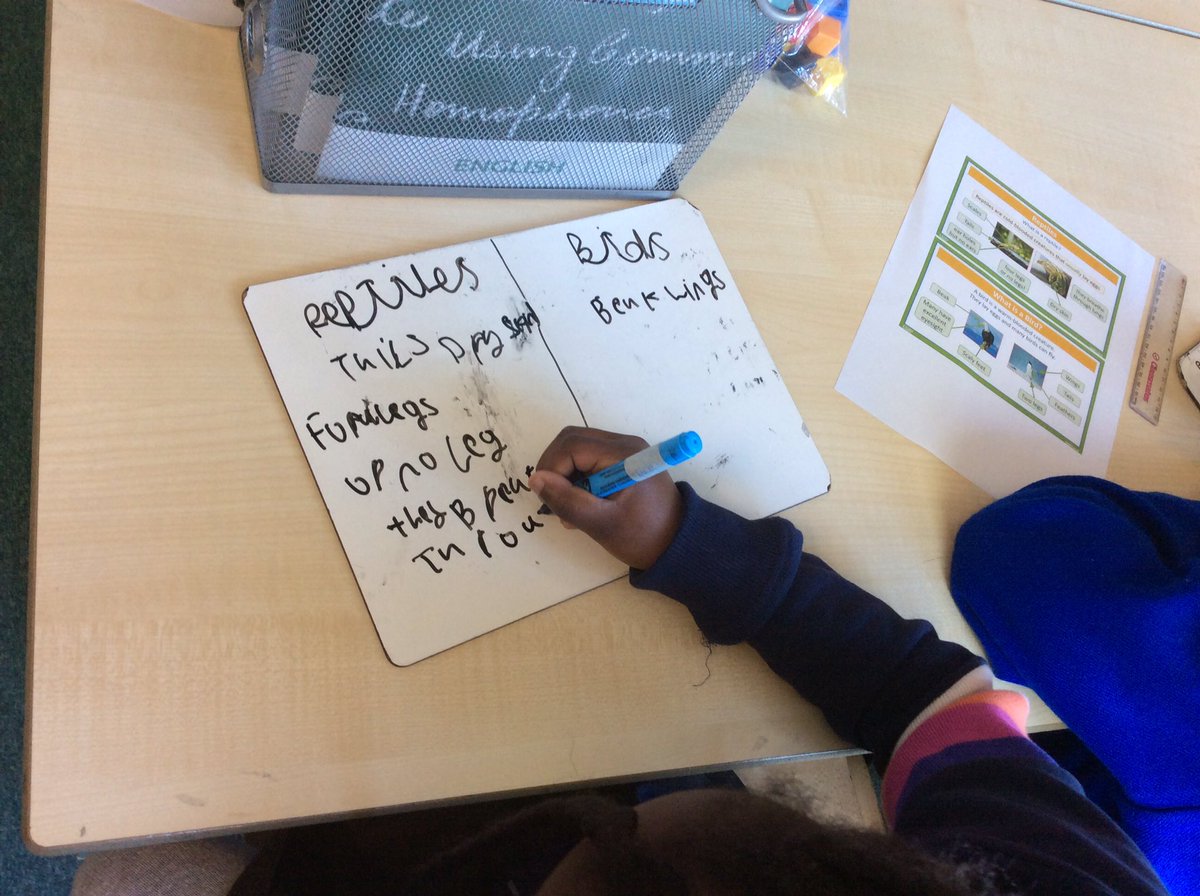 Using Commo
Homophones
ENGLISH
Reptiles
Tails Dry Skin
Four legs
or no leg
they B
In
Birds
Beak Wings
Reptiles
What is a reptile?
Reptiles are cold-blooded creatures that usually lay eggs.
Scales
Tails
ear holes
but no ears
four legs
or no legs
dry skin
They breathe
through lungs
What is a Bird?
A bird is a warm-blooded creature.
They lay eggs and many birds can fly.
Beak
Many have
excellent
eyesight
Scaly feet
Two legs
Wings
Tails
Feathers